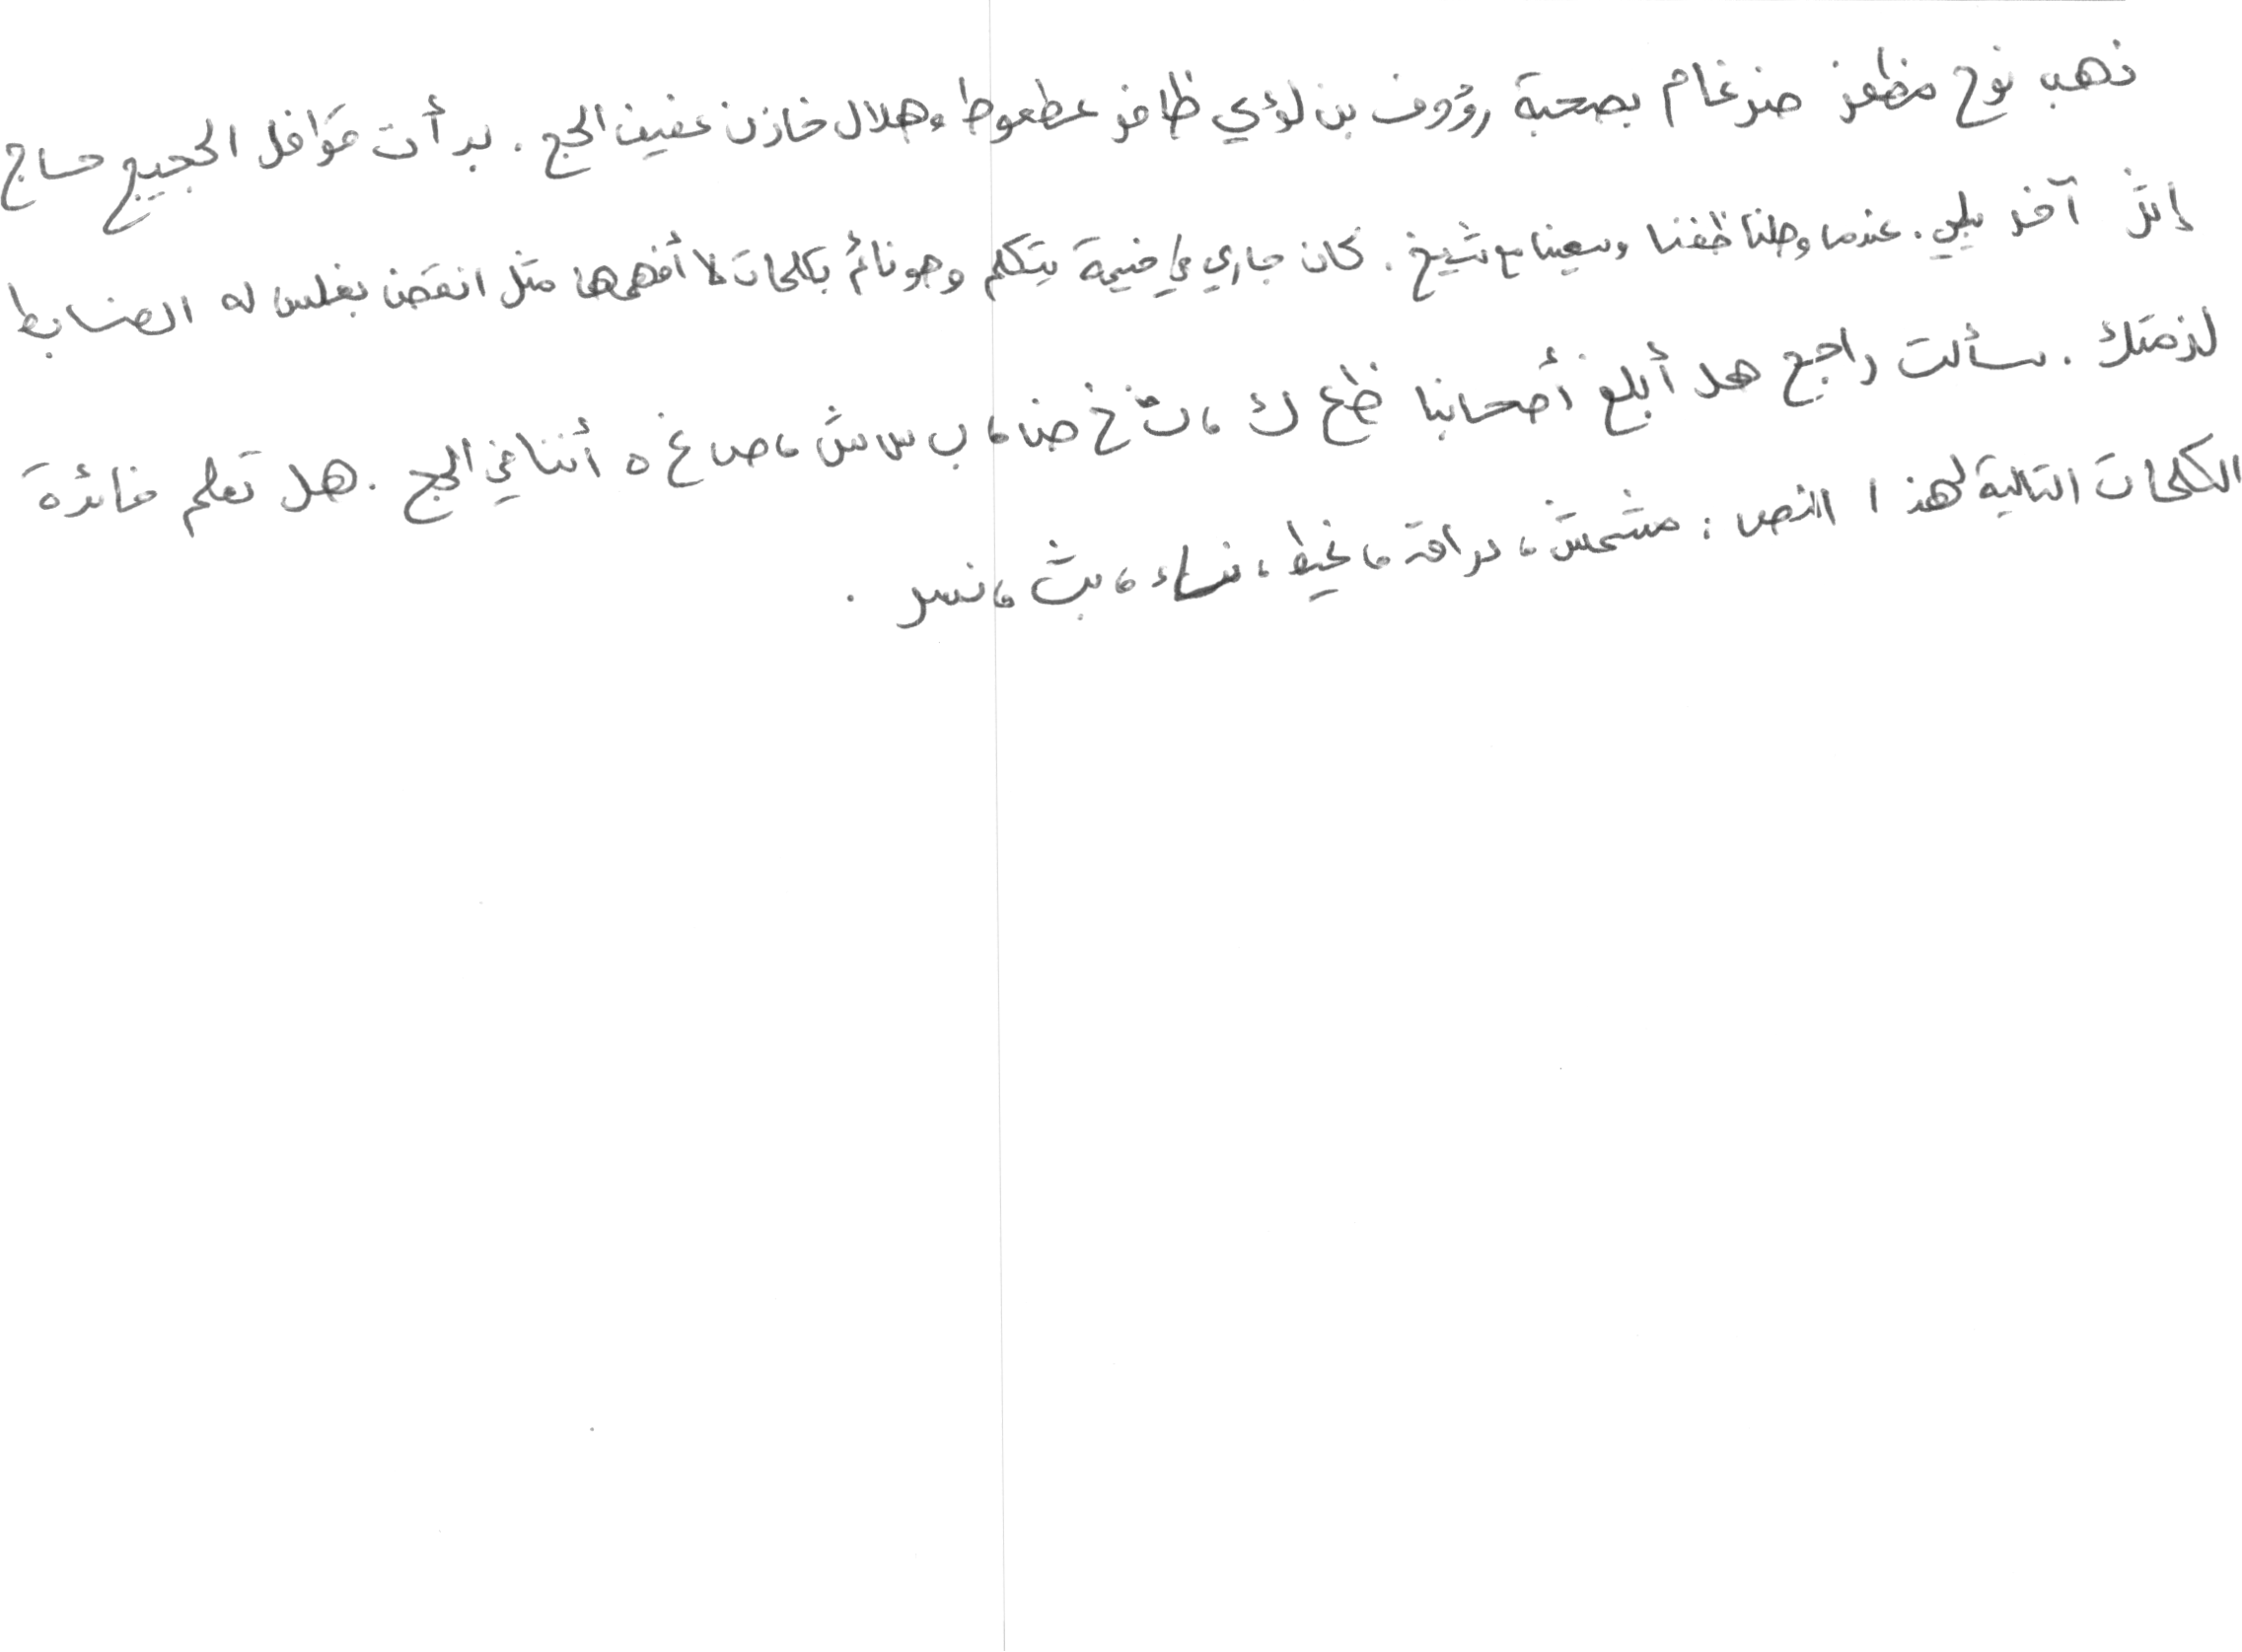 ذهب نوح مظفر ضرغام بصحبة رؤوف بن لؤي ظافر عطعوط وهلال خازن عفيف الحج . بدأت قوافل الحجيج حاج
إثر آخر بلي . عندما وصلنا طفنا وسعينا مع شيخ . كان جاري في خيمة يتكلم وهو نائم بكلمات لا أفهمها مثل انقض بغلس له الضابط
لذمتك . سألت راجح هل أبلغ أصحابنا ظ ع ك ، ث خ ض ، ب س ش ، ص غ ه أثناء الحج . هل تعلم فائدة
الكلمات التالية لهذا النص : مشمش ، دراق ، غيظ ، نساء ، بث ، نسر .